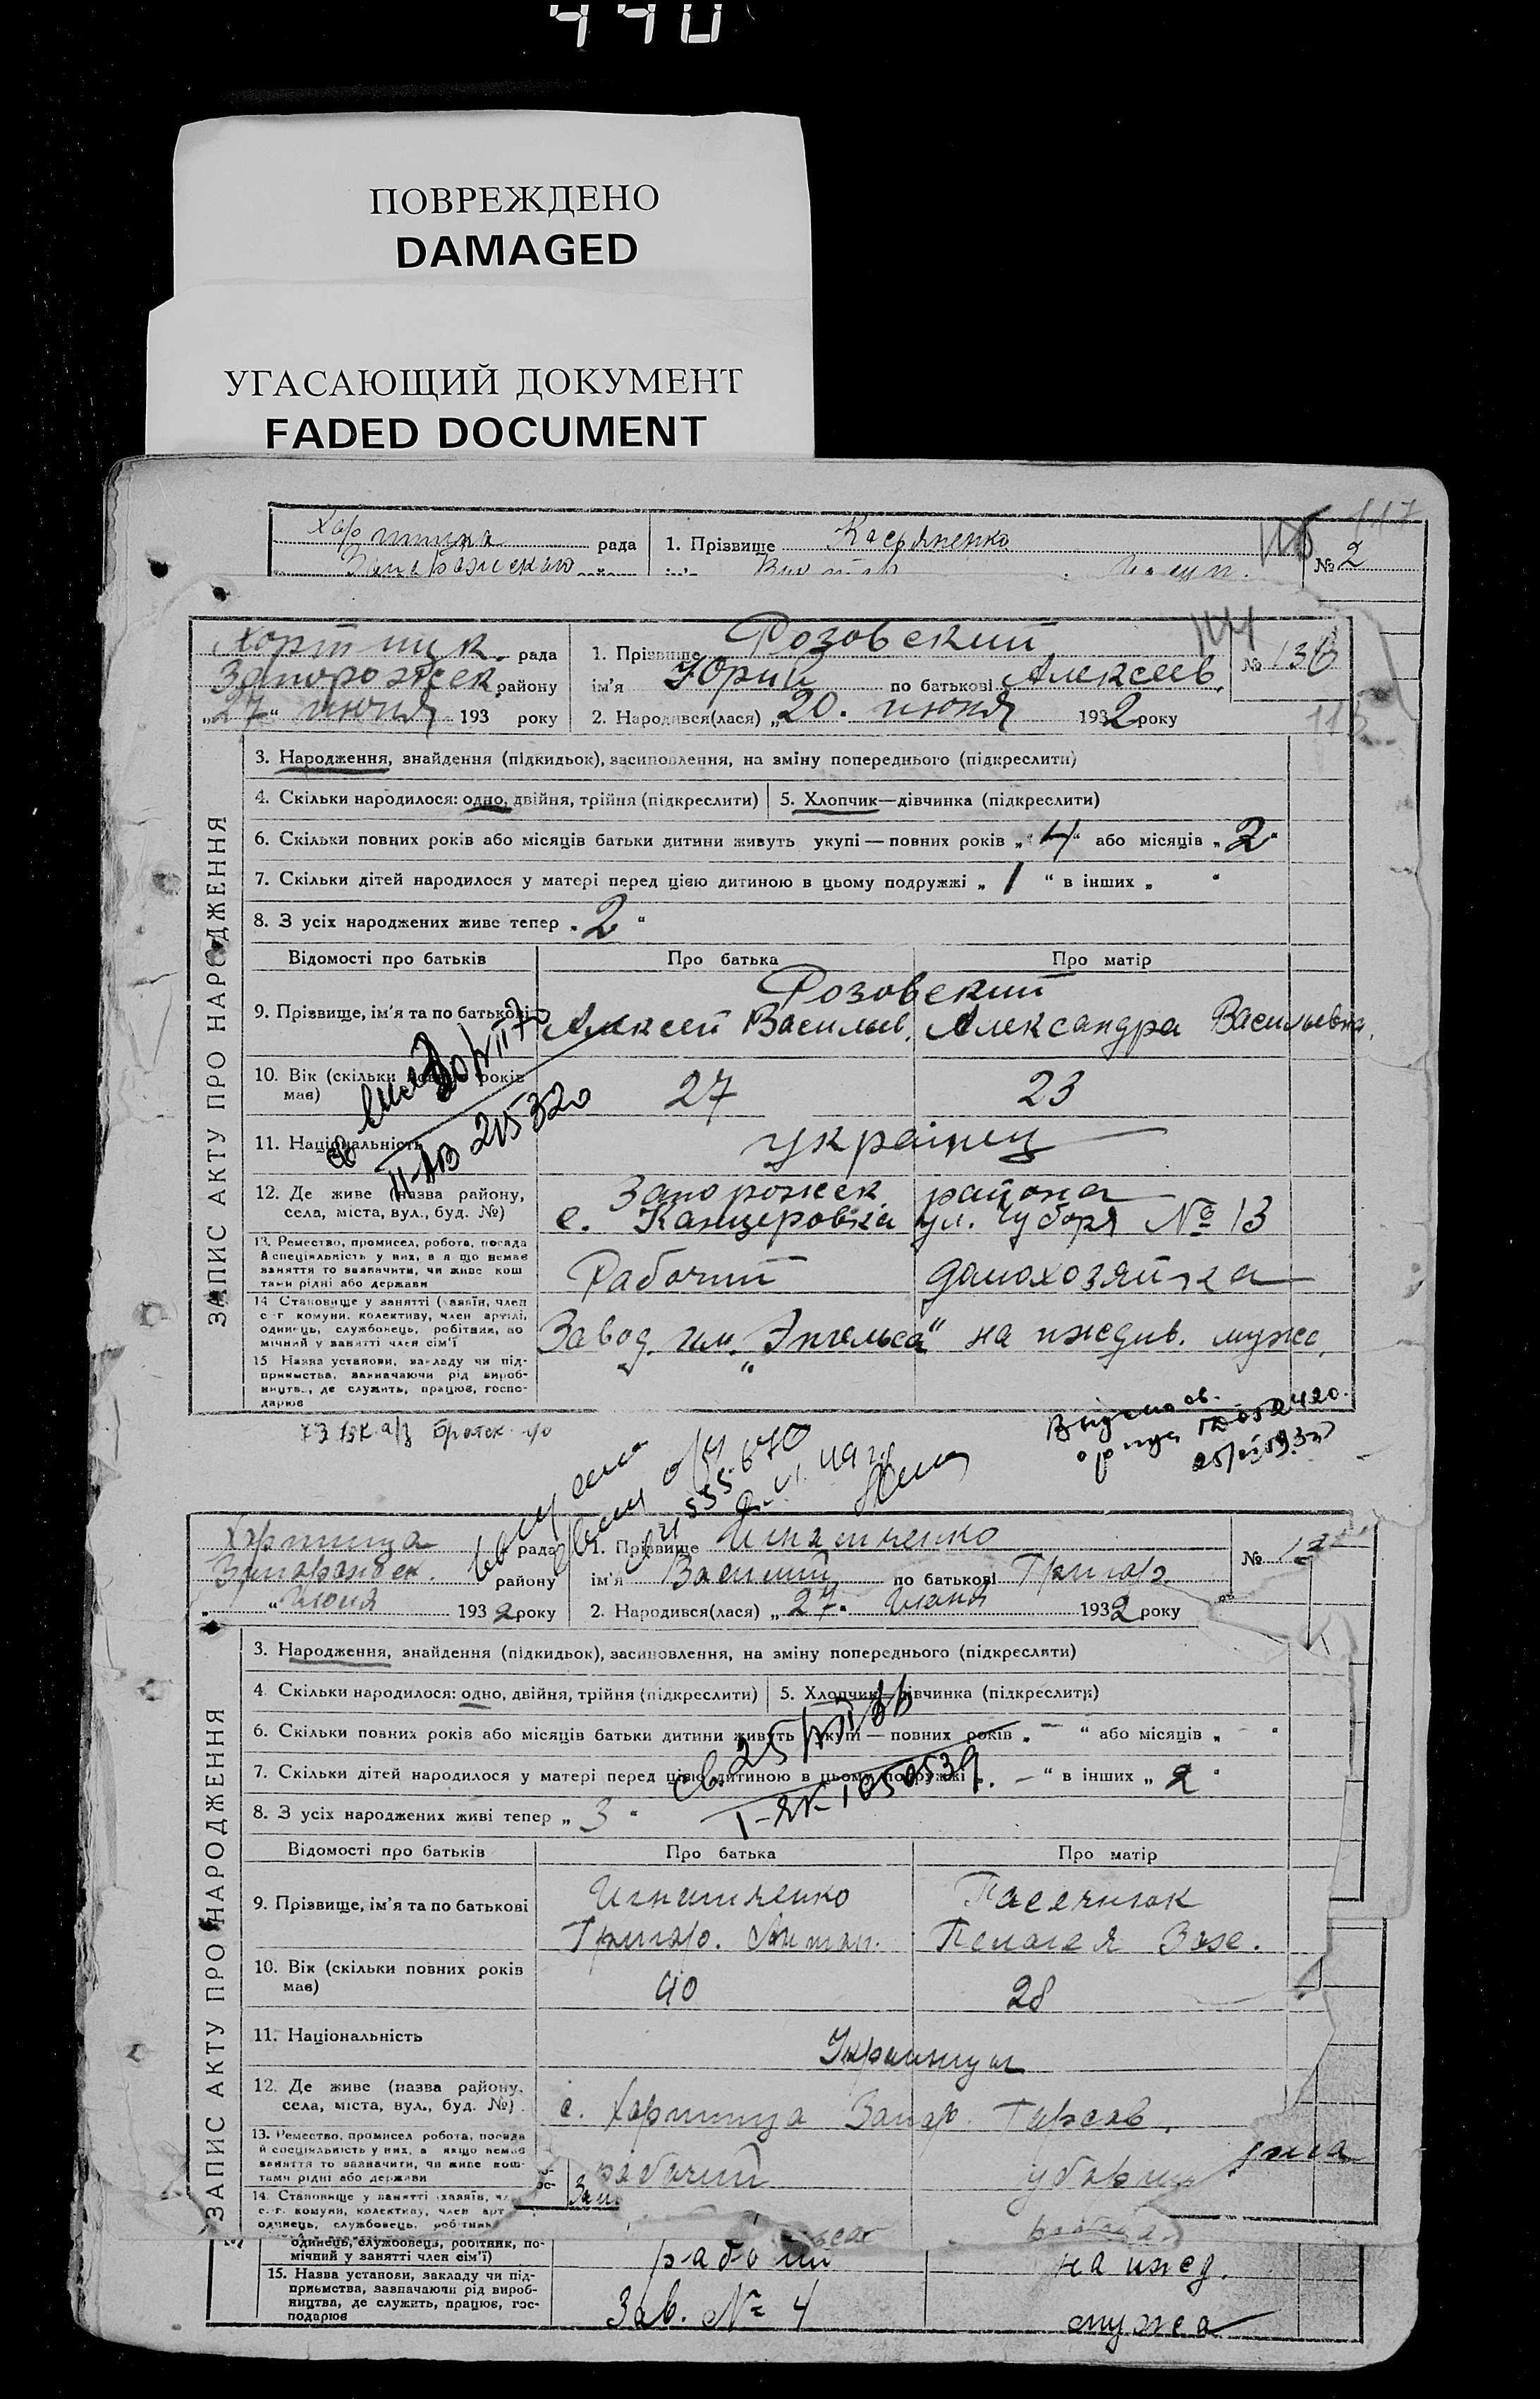 440
ПОВРЕЖДЕНО
DAMAGED
УГАСАЮЩИЙ ДОКУМЕНТ
FADED DOCUMENT
117
рада 1. Прізвище Касьяненко
№ 2
Хортицк. рада 1. Прізвище Розовский 114
Запорожск району ім'я Юрий по батькові Алексеев. № 136
„27“ июня 193 року 2. Народився(лася) „20. июня 1932 року
3. Народження, знайдення (підкидьок), засиновлення, на зміну попереднього (підкреслити)
4. Скільки народилося: одно, двійня, трійня (підкреслити) 5. Хлопчик—дівчинка (підкреслити)
6. Скільки повних років або місяців батьки дитини живуть укупі — повних років „4“ або місяців „2“
7. Скільки дітей народилося у матері перед цією дитиною в цьому подружжі „1“ в інших „ “
8. З усіх народжених живе тепер „2“
Відомості про батьків Про батька Про матір
Розовский
9. Прізвище, ім'я та по батькові Алексей Васильев. Александра Васильевна.
10. Вік (скільки повних років має) 27 23
11. Національність украинец
II-АВ 215320
12. Де живе (назва району, Запорожск. района
села, міста, вул., буд. №) с. Канцеровка ул. Чубаря № 13
13. Ремество, промисел, робота, посада
й спеціяльність у них, а якщо немає
заняття то зазначити, чи живе кош
тами рідні або держави
Рабочий домохозяйка
14 Становище у занятті (хазяїн, член
с-г комуни, колективу, член артілі,
одинець, службовець, робітник, по
мічний у занятті член сім'ї
Завод. им. „Энгельса“ на иждив. мужа.
15 Назва установи, закладу чи під-
приємства, зазначаючи рід вироб-
ництва, де служить, працює, госпо-
дарює
ЗАПИС АКТУ ПРО НАРОДЖЕННЯ
Хортица рада 1. Прізвище Игнатченко
Запорожск. району ім'я Василий по батькові Григор. №
„ “ Июня 1932 року 2. Народився(лася) „27. Июня 1932 року
3. Народження, знайдення (підкидьок), засиновлення, на зміну попереднього (підкреслити)
4. Скільки народилося: одно, двійня, трійня (підкреслити) 5. Хлопчик—дівчинка (підкреслити)
6. Скільки повних років або місяців батьки дитини живуть укупі — повних років „ — “ або місяців „ “
7. Скільки дітей народилося у матері перед цією дитиною в цьому подружжі „ — “ в інших „2“
8. З усіх народжених живі тепер „3“
Відомості про батьків Про батька Про матір
9. Прізвище, ім'я та по батькові Игнатченко Пасечнюк
Григор. Пелагея
10. Вік (скільки повних років має) 40 28
11. Національність Украинцы
12. Де живе (назва району,
села, міста, вул., буд. №) с. Хортица Запор.
13. Ремество, промисел робота, посада
й спеціяльність у них, а якщо немає
заняття то зазначити, чи живе кош-
тами рідні або держави
рабочий
14. Становище у занятті хазяїн,
с.-г. комуни, колективу, член арт
одинець, службовець, робітник
ЗАПИС АКТУ ПРО НАРОДЖЕННЯ
одинець, службовець, робітник, по-
мічний у занятті член сім'ї)
рабочий на ижд.
15. Назва установи, закладу чи під-
приємства, зазначаючи рід вироб-
ництва, де служить, працює, гос-
подарює
Зав. № 4 мужа